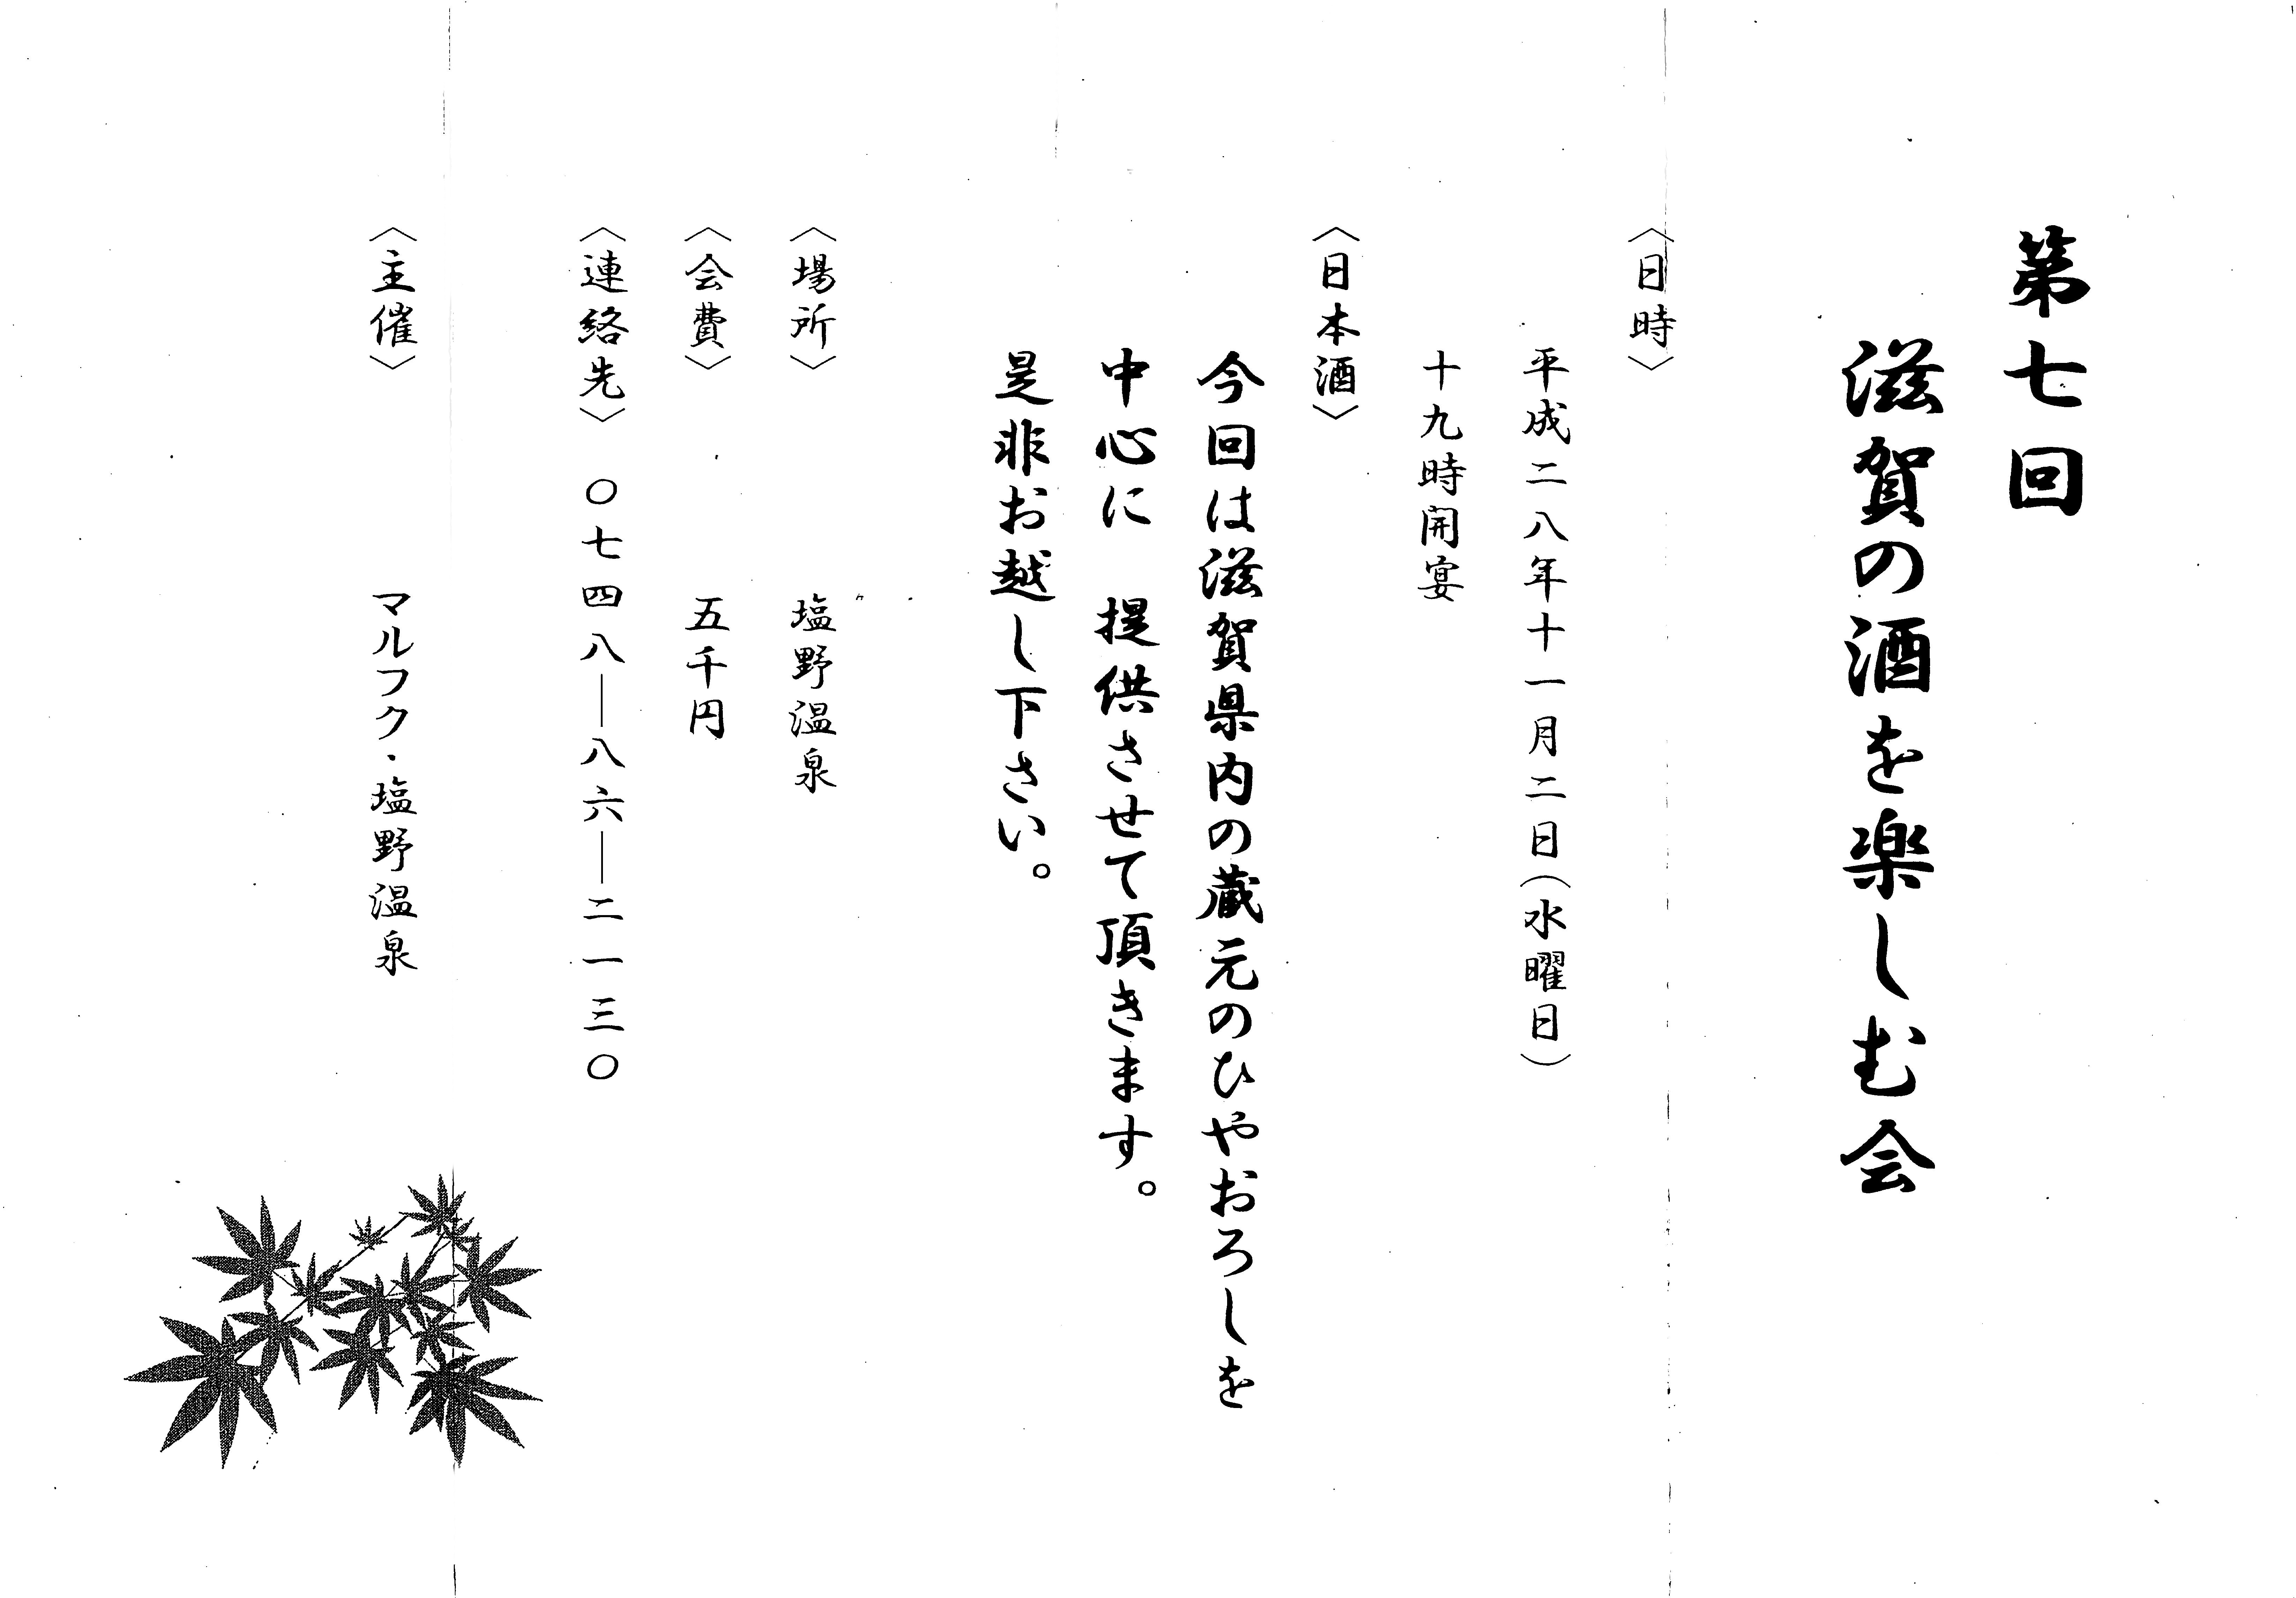 第七回
滋賀の酒を楽しむ会
〈日時〉
平成二八年十一月二日(水曜日)
十九時開宴
〈日本酒〉
今回は滋賀県内の蔵元のひやおろしを
中心に　提供させて頂きます。
是非お越し下さい。
〈場所〉　塩野温泉
〈会費〉　五千円
〈連絡先〉　〇七四八―八六―二一三〇
〈主催〉　マルフク・塩野温泉